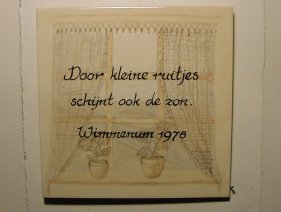 Door kleine ruitjes
schijnt ook de zon.
Wimmenum 1978